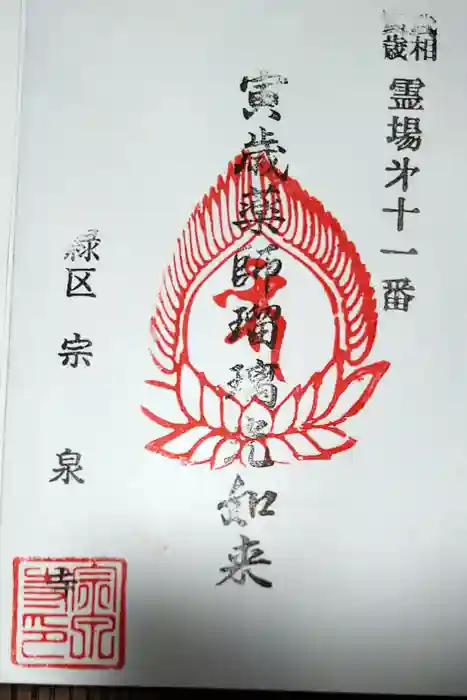 武相
寅歳
霊場第十一番
寅歳薬師瑠璃光如来
緑区 宗泉寺
宗泉寺印